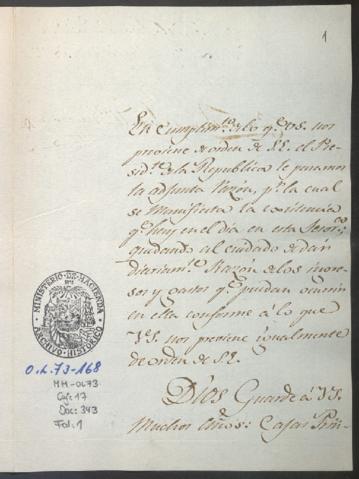 1
En Cumplim.to de lo q.e VS. nos
previene de orden de S.E. el Pre-
sid.te de la Republica le pasamos
la adjunta Razon, p.r la cual
se Manifiesta la existencia
q.e hay en el dia en esta Tesor.a
quedando al cuidado de dar
diariam.te Razón de los ingre-
sos y gastos q.e puedan ocurrir
en ella conforme á lo que
V.S. nos previene igualmente
de orden de S.E.
Dios Guarde á V.S.
muchos años: Casas Prin-
MINISTERIO DE HACIENDA
ARCHIVO HISTORICO
O.L. 73-168
MH-0473
Caj: 17
Doc: 343
Fol: 1